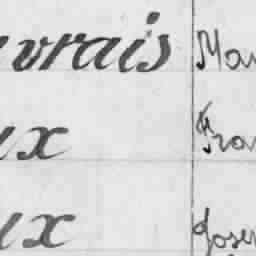 vrais Mar
ux Fra
ux Jose